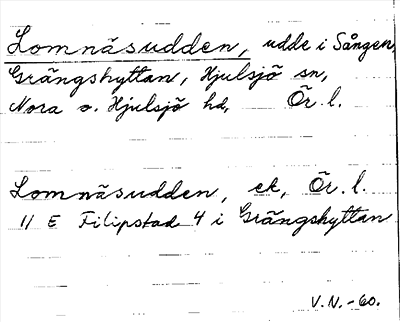 Lomnäsudden, udde i Sången,
Grängshyttan, Hjulsjö sn,
Nora o. Hjulsjö hd, Ör. l.
Lomnäsudden, ek, Ör. l.
11 E Filipstad 4 i Grängshyttan
V.N.-60.